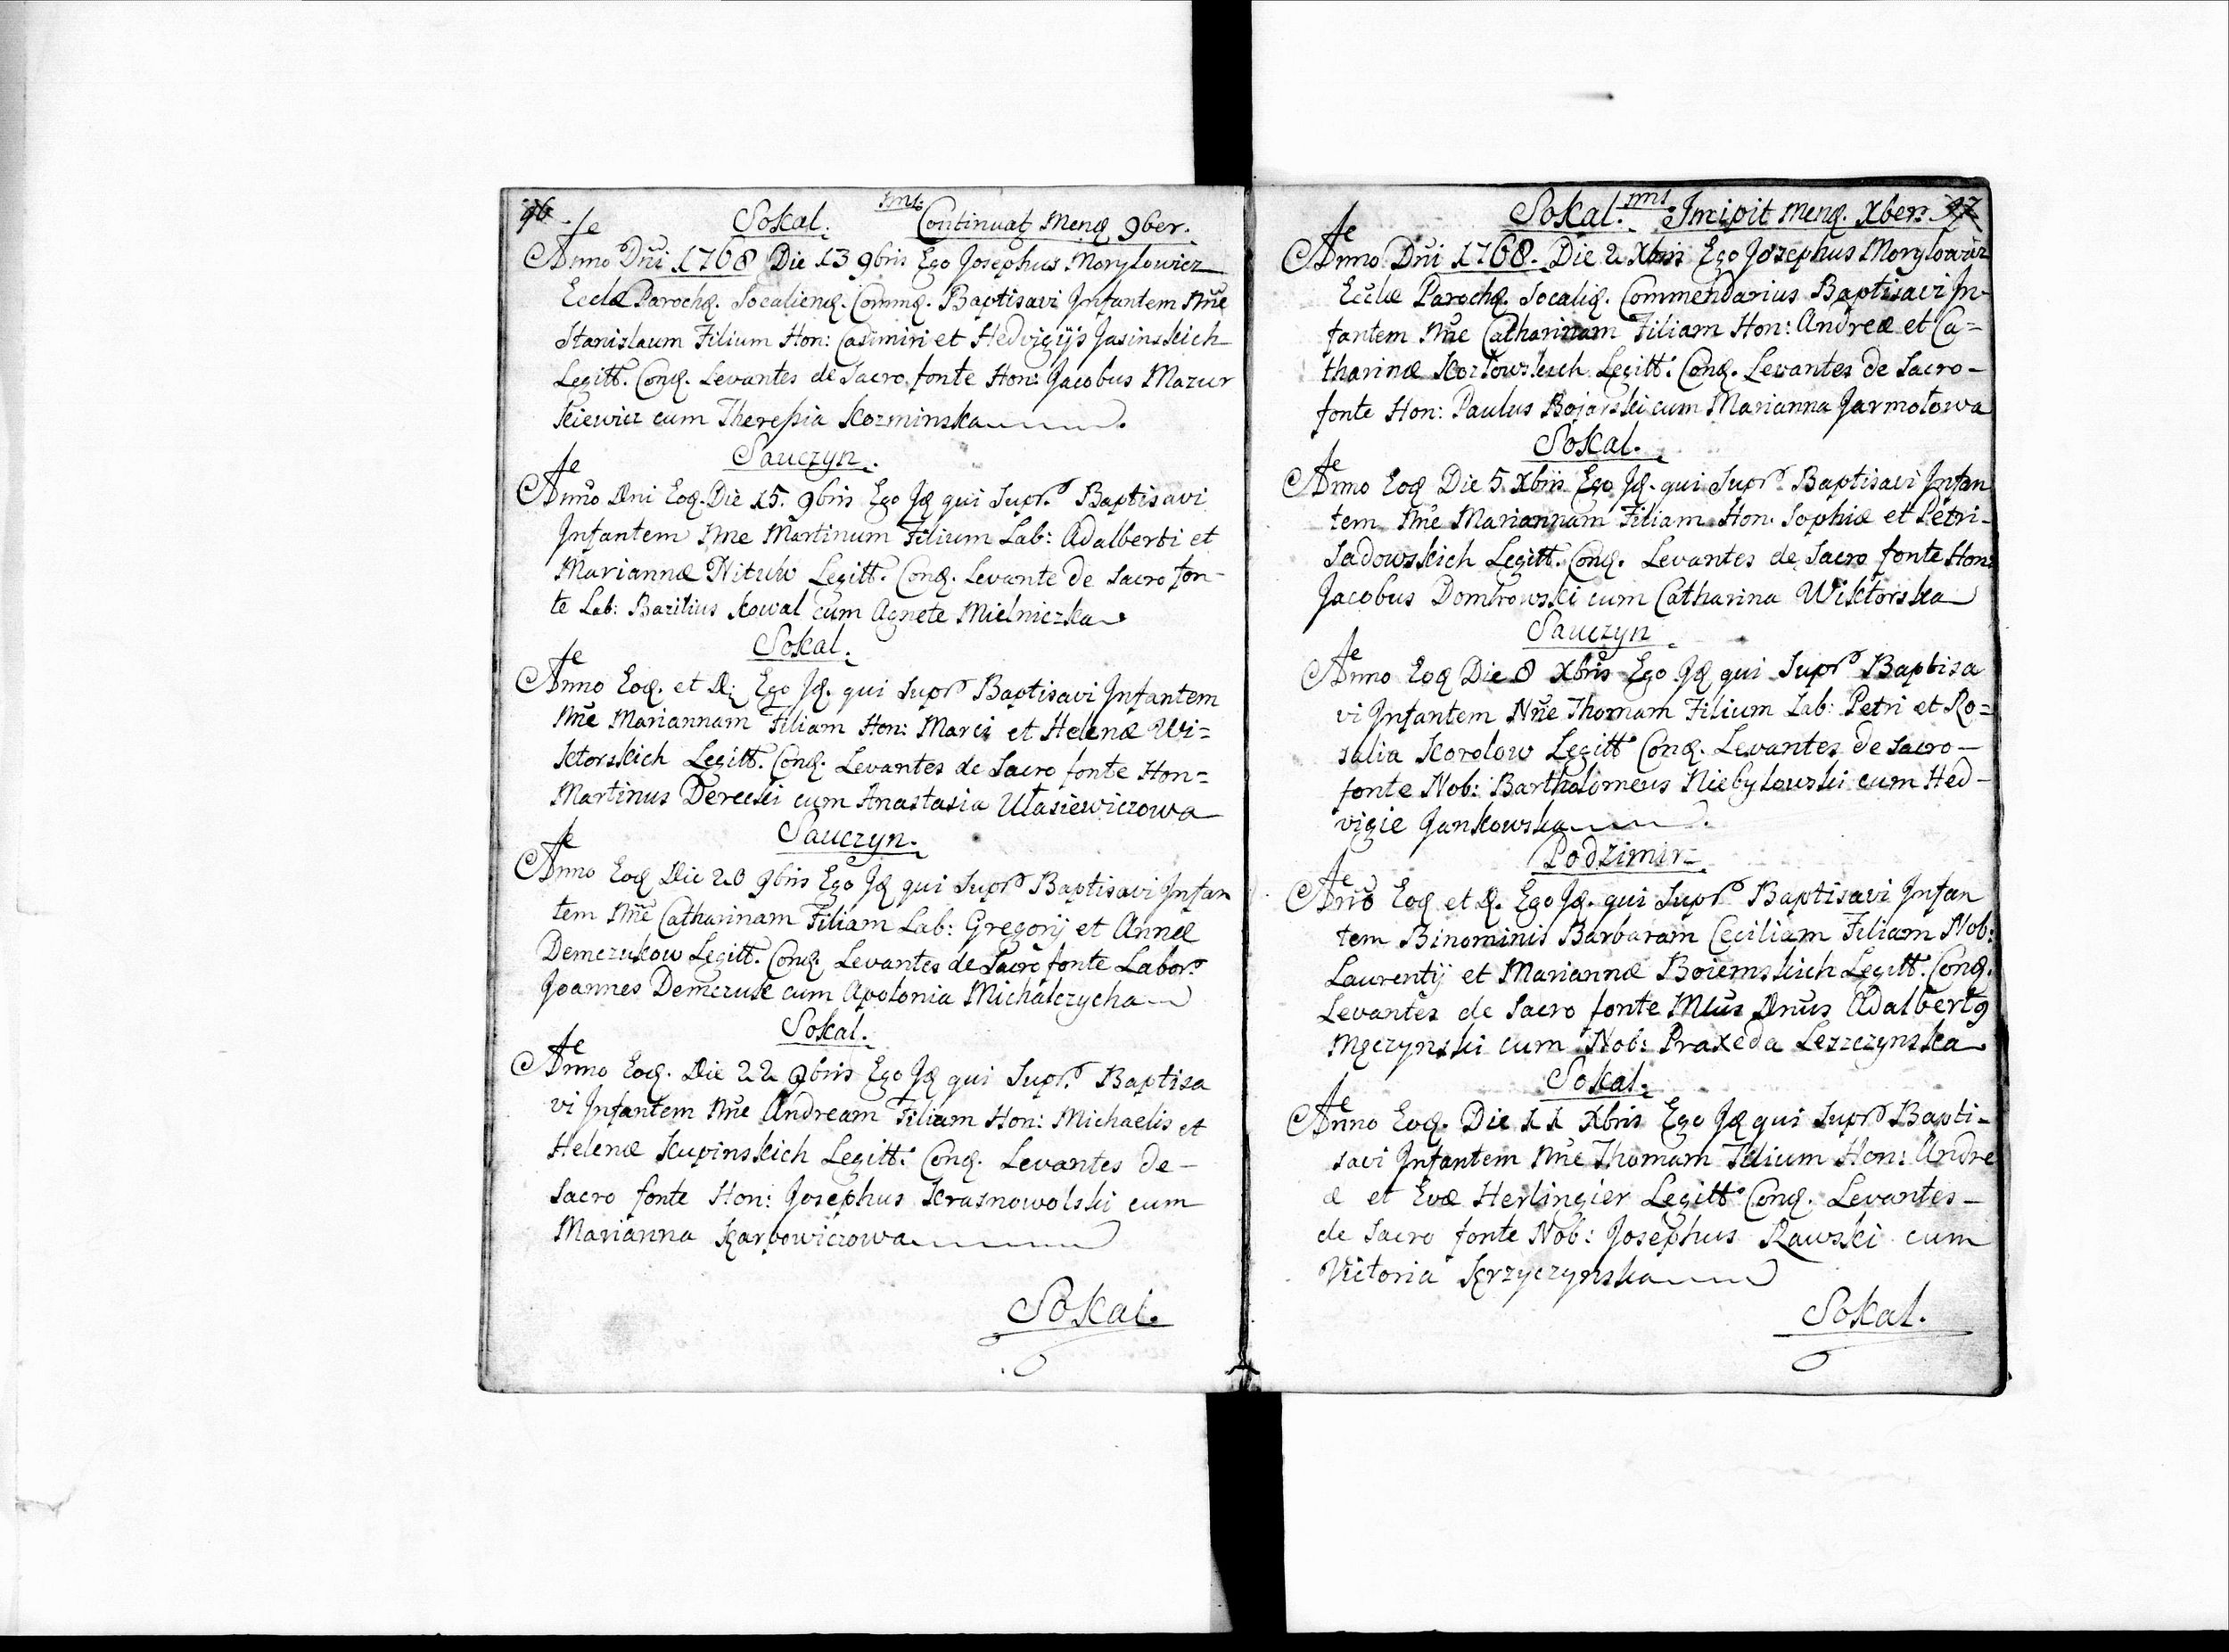 96. Sokal. 1ms. Continuat Menq 9ber.
Anno Dñi 1768 Die 13 9bris Ego Josephus Morylowicz
Ecclæ Parochq. Socalienq. Commq. Baptisavi Infantem Nñe
Stanislaum Filium Hon: Casimiri et Hedvigijs Jasinskich
Legitt. Conq. Levantes de Sacro fonte Hon: Jacobus Mazur
kiewicz cum Theressia Kozminska
Sauczyn.
Anno Dni Eoq. Die 15. 9bris Ego Jq qui Supr. Baptisavi
Infantem Nne Martinum Filium Lab: Adalberti et
Mariannæ Nituw Legitt. Conq. Levante de Sacro fon-
te Lab: Bazilius Kowal cum Agnete Mielniczka
Sokal.
Anno Eoq. et D: Ego Jq. qui Supr Baptisavi Infantem
Nñe Mariannam Filiam Hon: Marci et Helenæ Wi=
ktorskich Legitt. Conq. Levantes de Sacro fonte Hon=
Martinus Derecki cum Anastasia Ulasiewiczowa
Sauczyn.
Anno Eoq Die 20 9bris Ego Jq qui Supr Baptisavi Infan
tem Nñe Catharinam Filiam Lab: Gregorij et Annæ
Demczukow Legitt. Conq. Levantes de Sacro fonte Labor.
Joannes Demczuk cum Apolonia Michalczycha
Sokal.
Anno Eoq. Die 22 9bris Ego Jq qui Supr. Baptisa
vi Infantem Nñe Andream Filium Hon: Michaelis et
Helenæ Kupinskich Legitt: Conq. Levantes de-
Sacro fonte Hon: Josephus Krasnowolski cum
Marianna Karpowiczowa
Sokal.
Sokal. 1ms. Incipit Menq. Xber. 97
Anno Dñi 1768. Die 2 Xbris Ego Josephus Morylowicz
Ecclæ Parochq. Socaliq. Commendarius Baptisavi In-
fantem Nñe Catharinam Filiam Hon: Andreæ et Ca=
tharinæ Kozlowskich Legitt: Conq. Levantes de Sacro-
fonte Hon: Paulus Bojarski cum Marianna Jarmolowa
Sokal.
Anno Eoq Die 5 Xbris Ego Jq. qui Supr. Baptisavi Infan
tem Nñe Mariannam Filiam Hon. Sophiæ et Petri-
Sadowskich Legitt. Conq. Levantes de Sacro fonte Hon:
Jacobus Dombrowski cum Catharina Wiktorska
Sauczyn
Anno Eoq Die 8 Xbris Ego Jq qui Supr Baptisa
vi Infantem Nñe Thomam Filium Lab: Petri et Ro=
salia Korolow Legitt Conq. Levantes de Sacro-
fonte Nob: Bartholomeus Niebylowski cum Hed-
vigie Jankowska
Podzimir
Anño Eoq et D. Ego Jq. qui Supr Baptisavi Infan
tem Binominis Barbaram Ceciliam Filiam Nob:
Laurentij et Mariannæ Boiemskich Legitt. Conq.
Levantes de Sacro fonte Mcus Dnus Adalbert9
Męczynski cum Nob: Praxeda Leszczynska
Sokal.
Anno Eoq. Die 11 Xbris Ego Jq qui Supr Bapti-
savi Infantem Nñe Thomam Filium Hon: Andre
æ et Evæ Herlingier Legitt Conq. Levantes-
de Sacro fonte Nob: Josephus Rawski cum
Victoria Krzyczynska
Sokal.